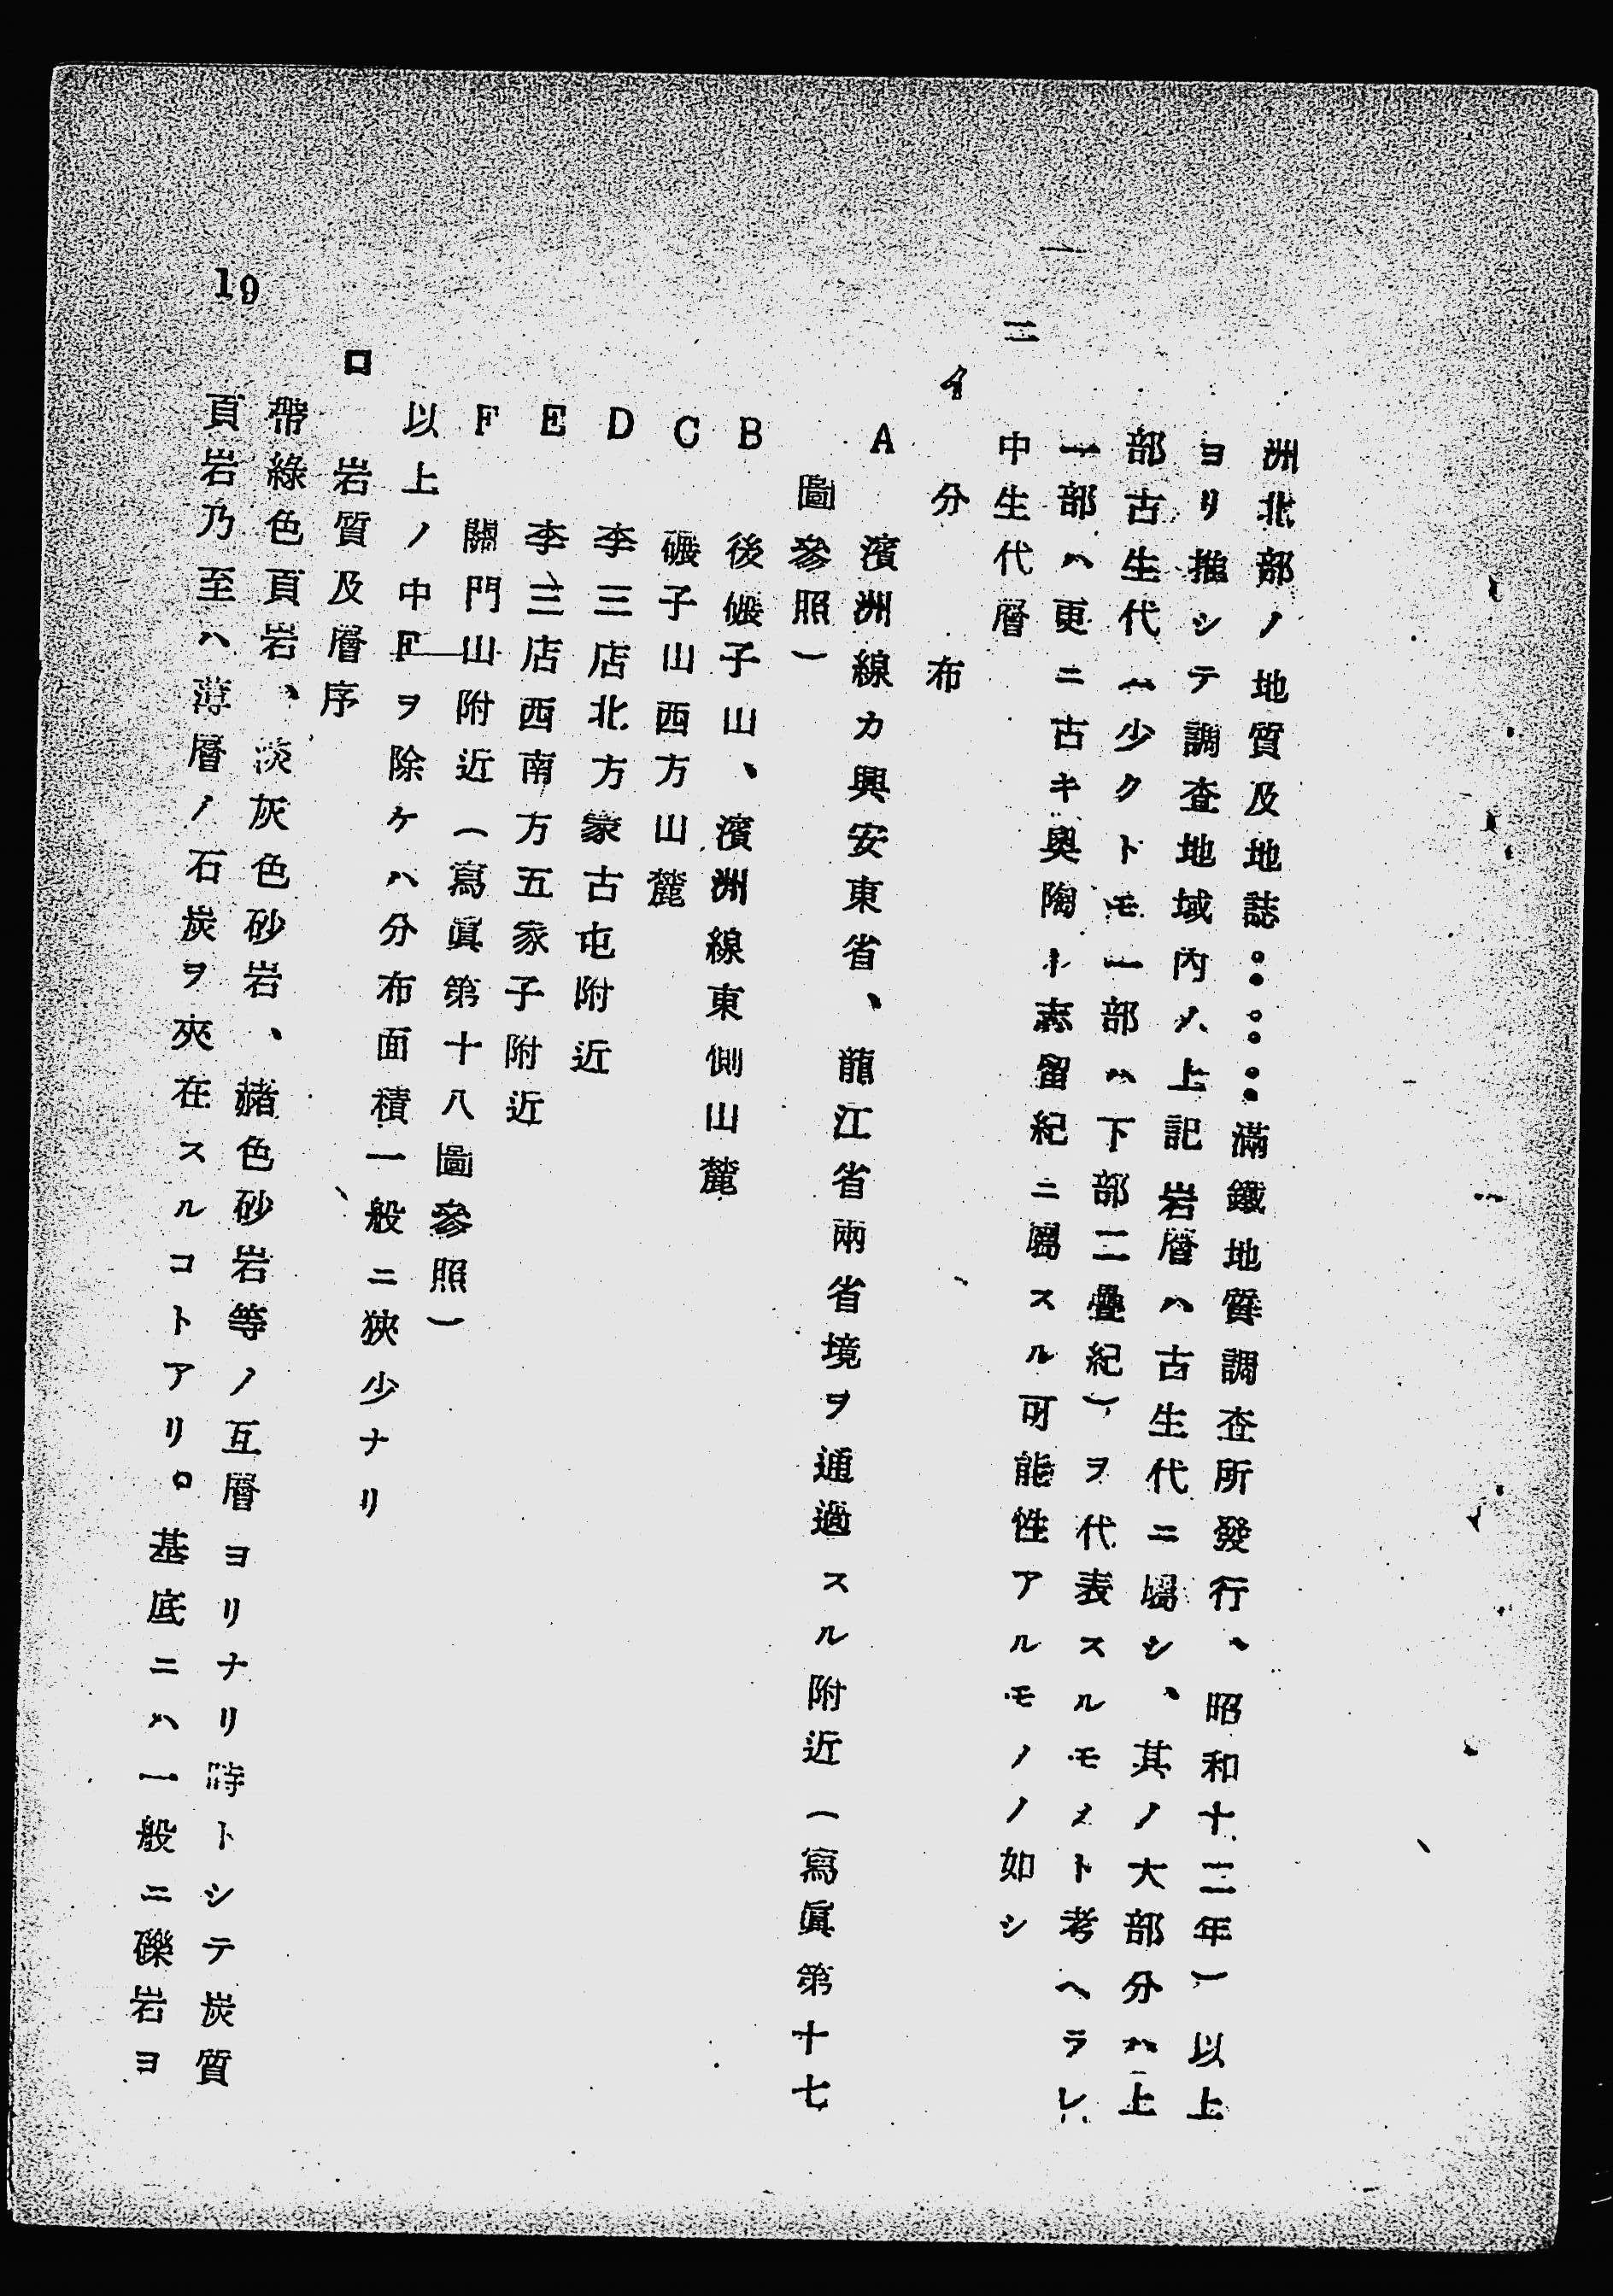 洲北部ノ地質及地誌……滿鐵地質調査所發行、昭和十二年）以上
ヨリ推シテ調査地域內ノ上記岩層ハ古生代ニ屬シ、其ノ大部分ハ上
部古生代（少クトモ一部ハ下部二疊紀）ヲ代表スルモノト考ヘラレ
一部ハ更ニ古キ奧陶ト志留紀ニ屬スル可能性アルモノノ如シ
三 中生代層
イ 分布
A 濱洲線カ興安東省、龍江省兩省境ヲ通過スル附近（寫眞第十七
圖參照）
B 後碾子山、濱洲線東側山麓
C 碾子山西方山麓
D 李三店北方蒙古屯附近
E 李三店西南方五家子附近
F 關門山附近（寫眞第十八圖參照）
以上ノ中Fヲ除ケハ分布面積一般ニ狹少ナリ
ロ 岩質及層序
帶綠色頁岩、淡灰色砂岩、赭色砂岩等ノ互層ヨリナリ時トシテ炭質
頁岩乃至ハ薄層ノ石炭ヲ夾在スルコトアリ。基底ニハ一般ニ礫岩ヨ
19